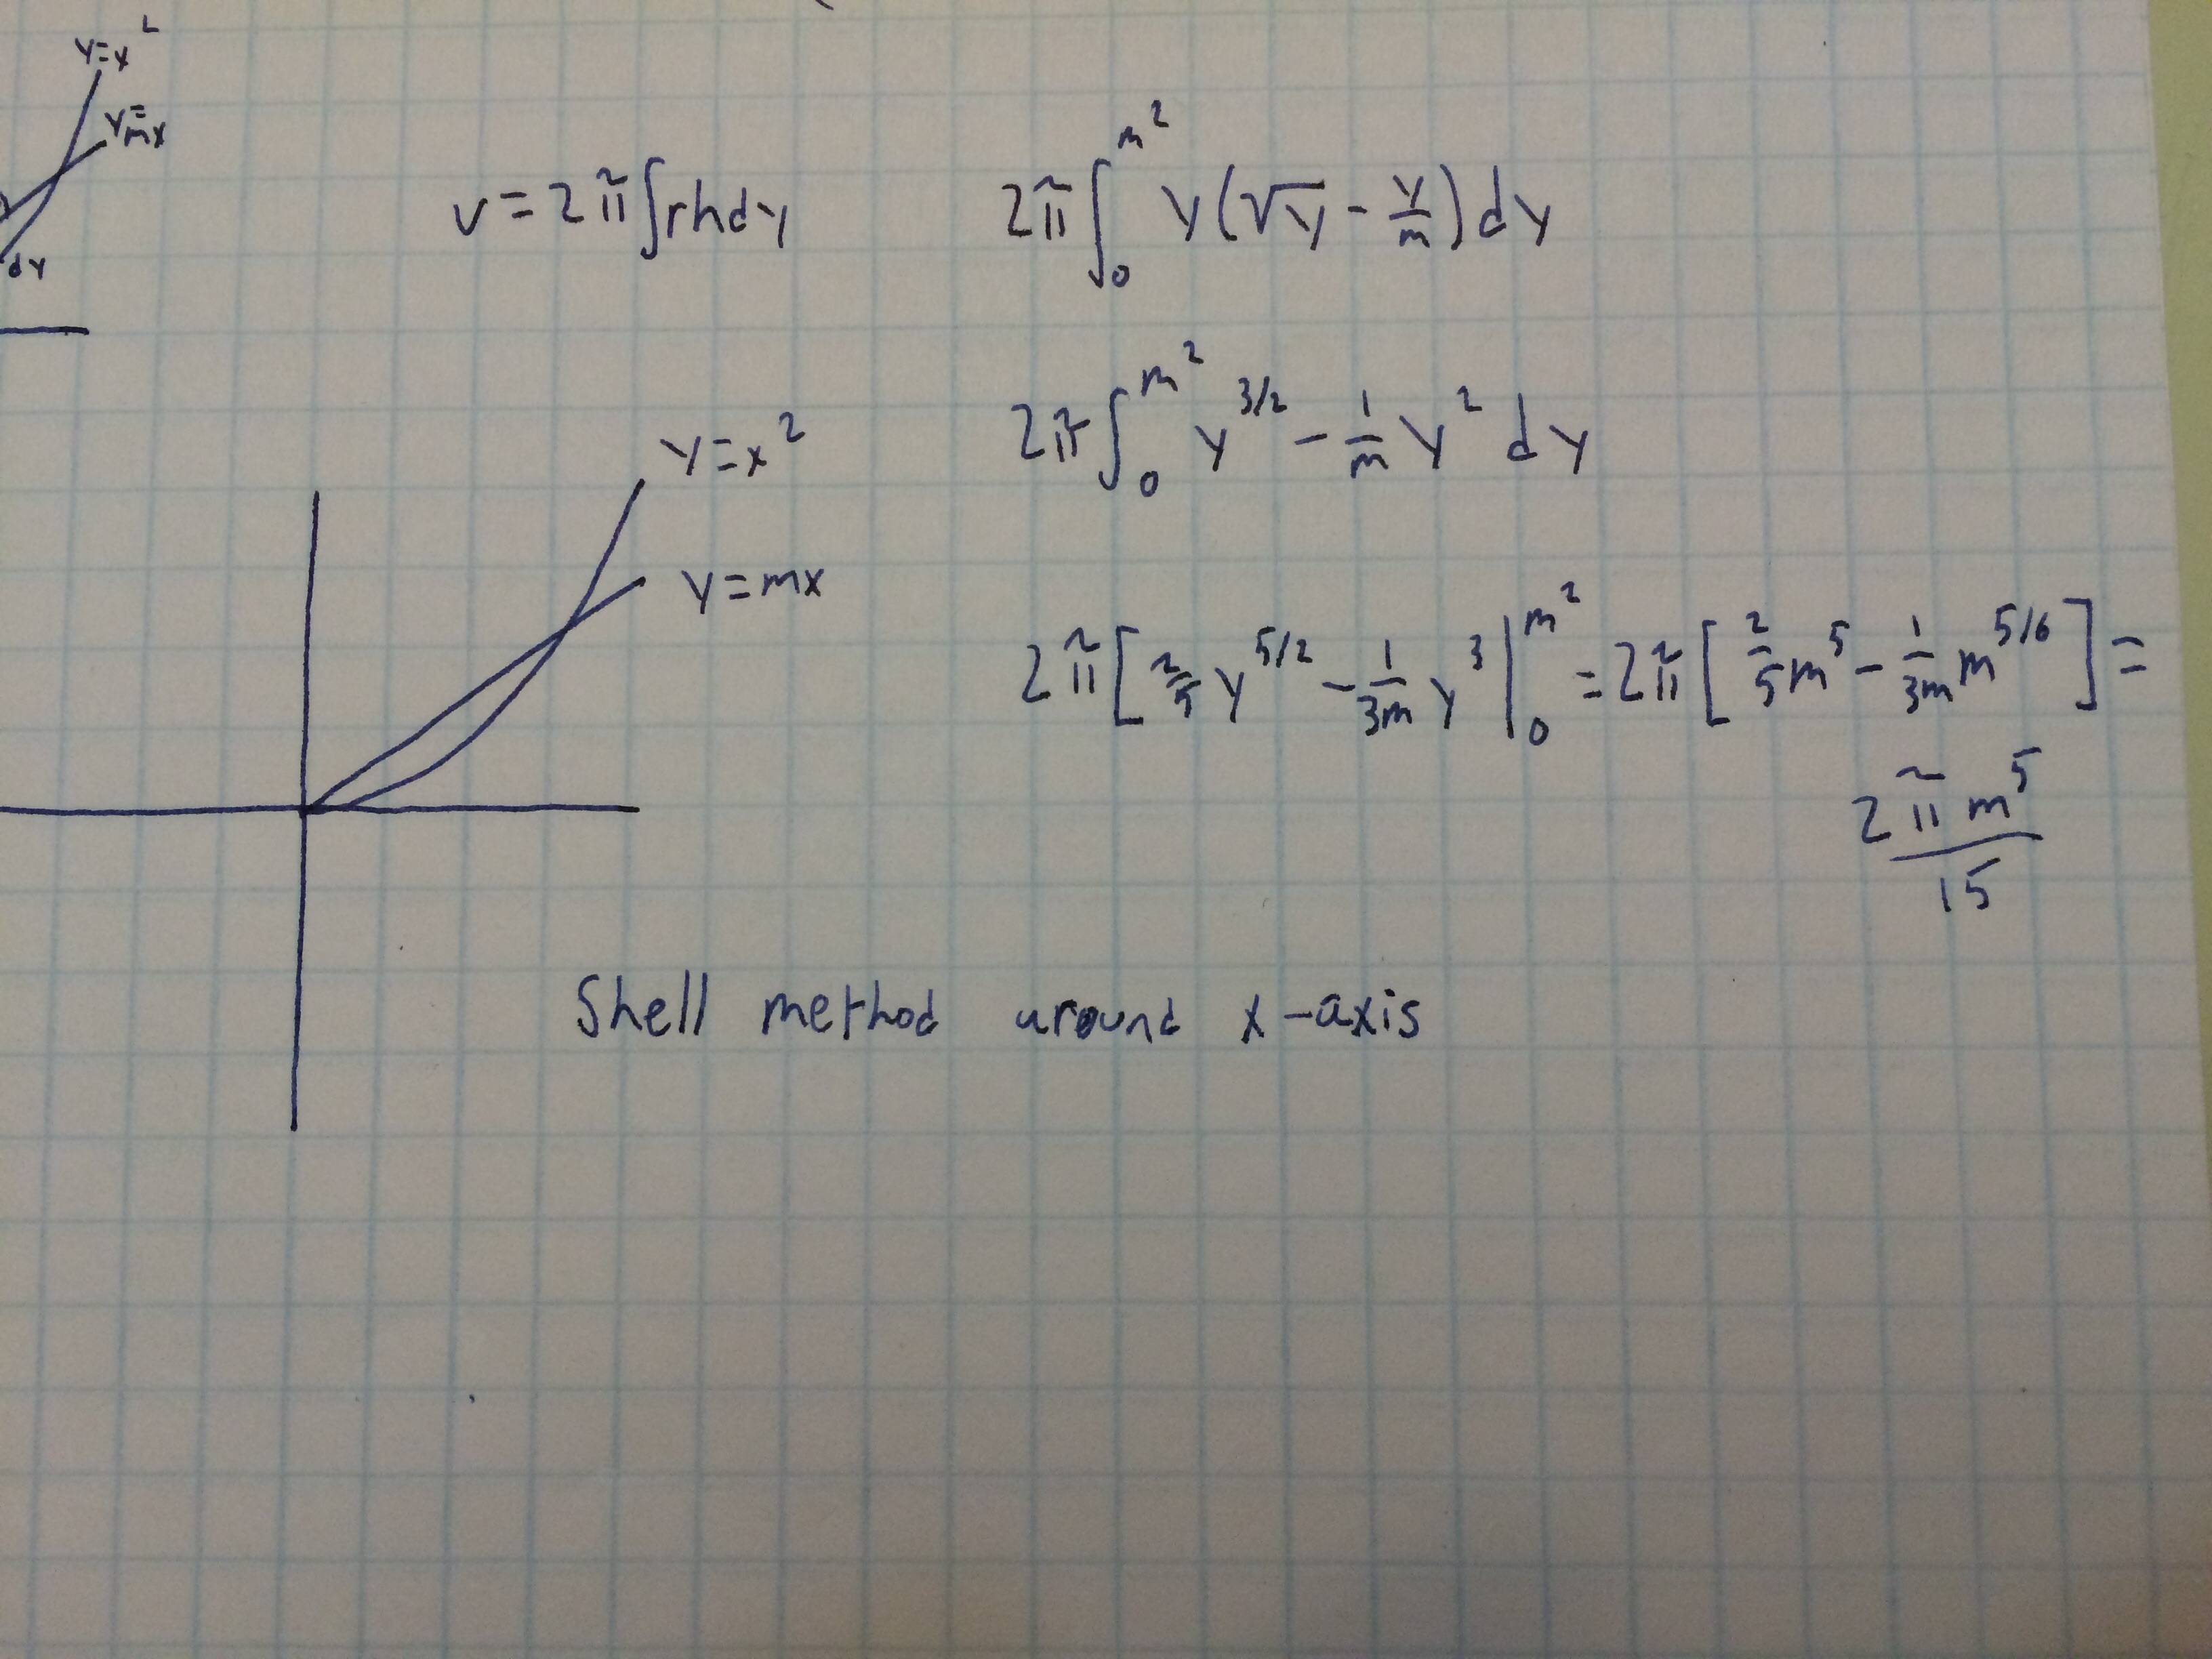 y=x²
y=mx
dy
v=2π∫rhdy
2π∫₀^m² y(√y - y/m)dy
2π∫₀^m² y^3/2 - 1/m y² dy
y=x²
y=mx
2π[2/5 y^5/2 - 1/3m y³|₀^m² = 2π[2/5 m⁵ - 1/3m m^5/6] =
2πm⁵/15
Shell method around x-axis